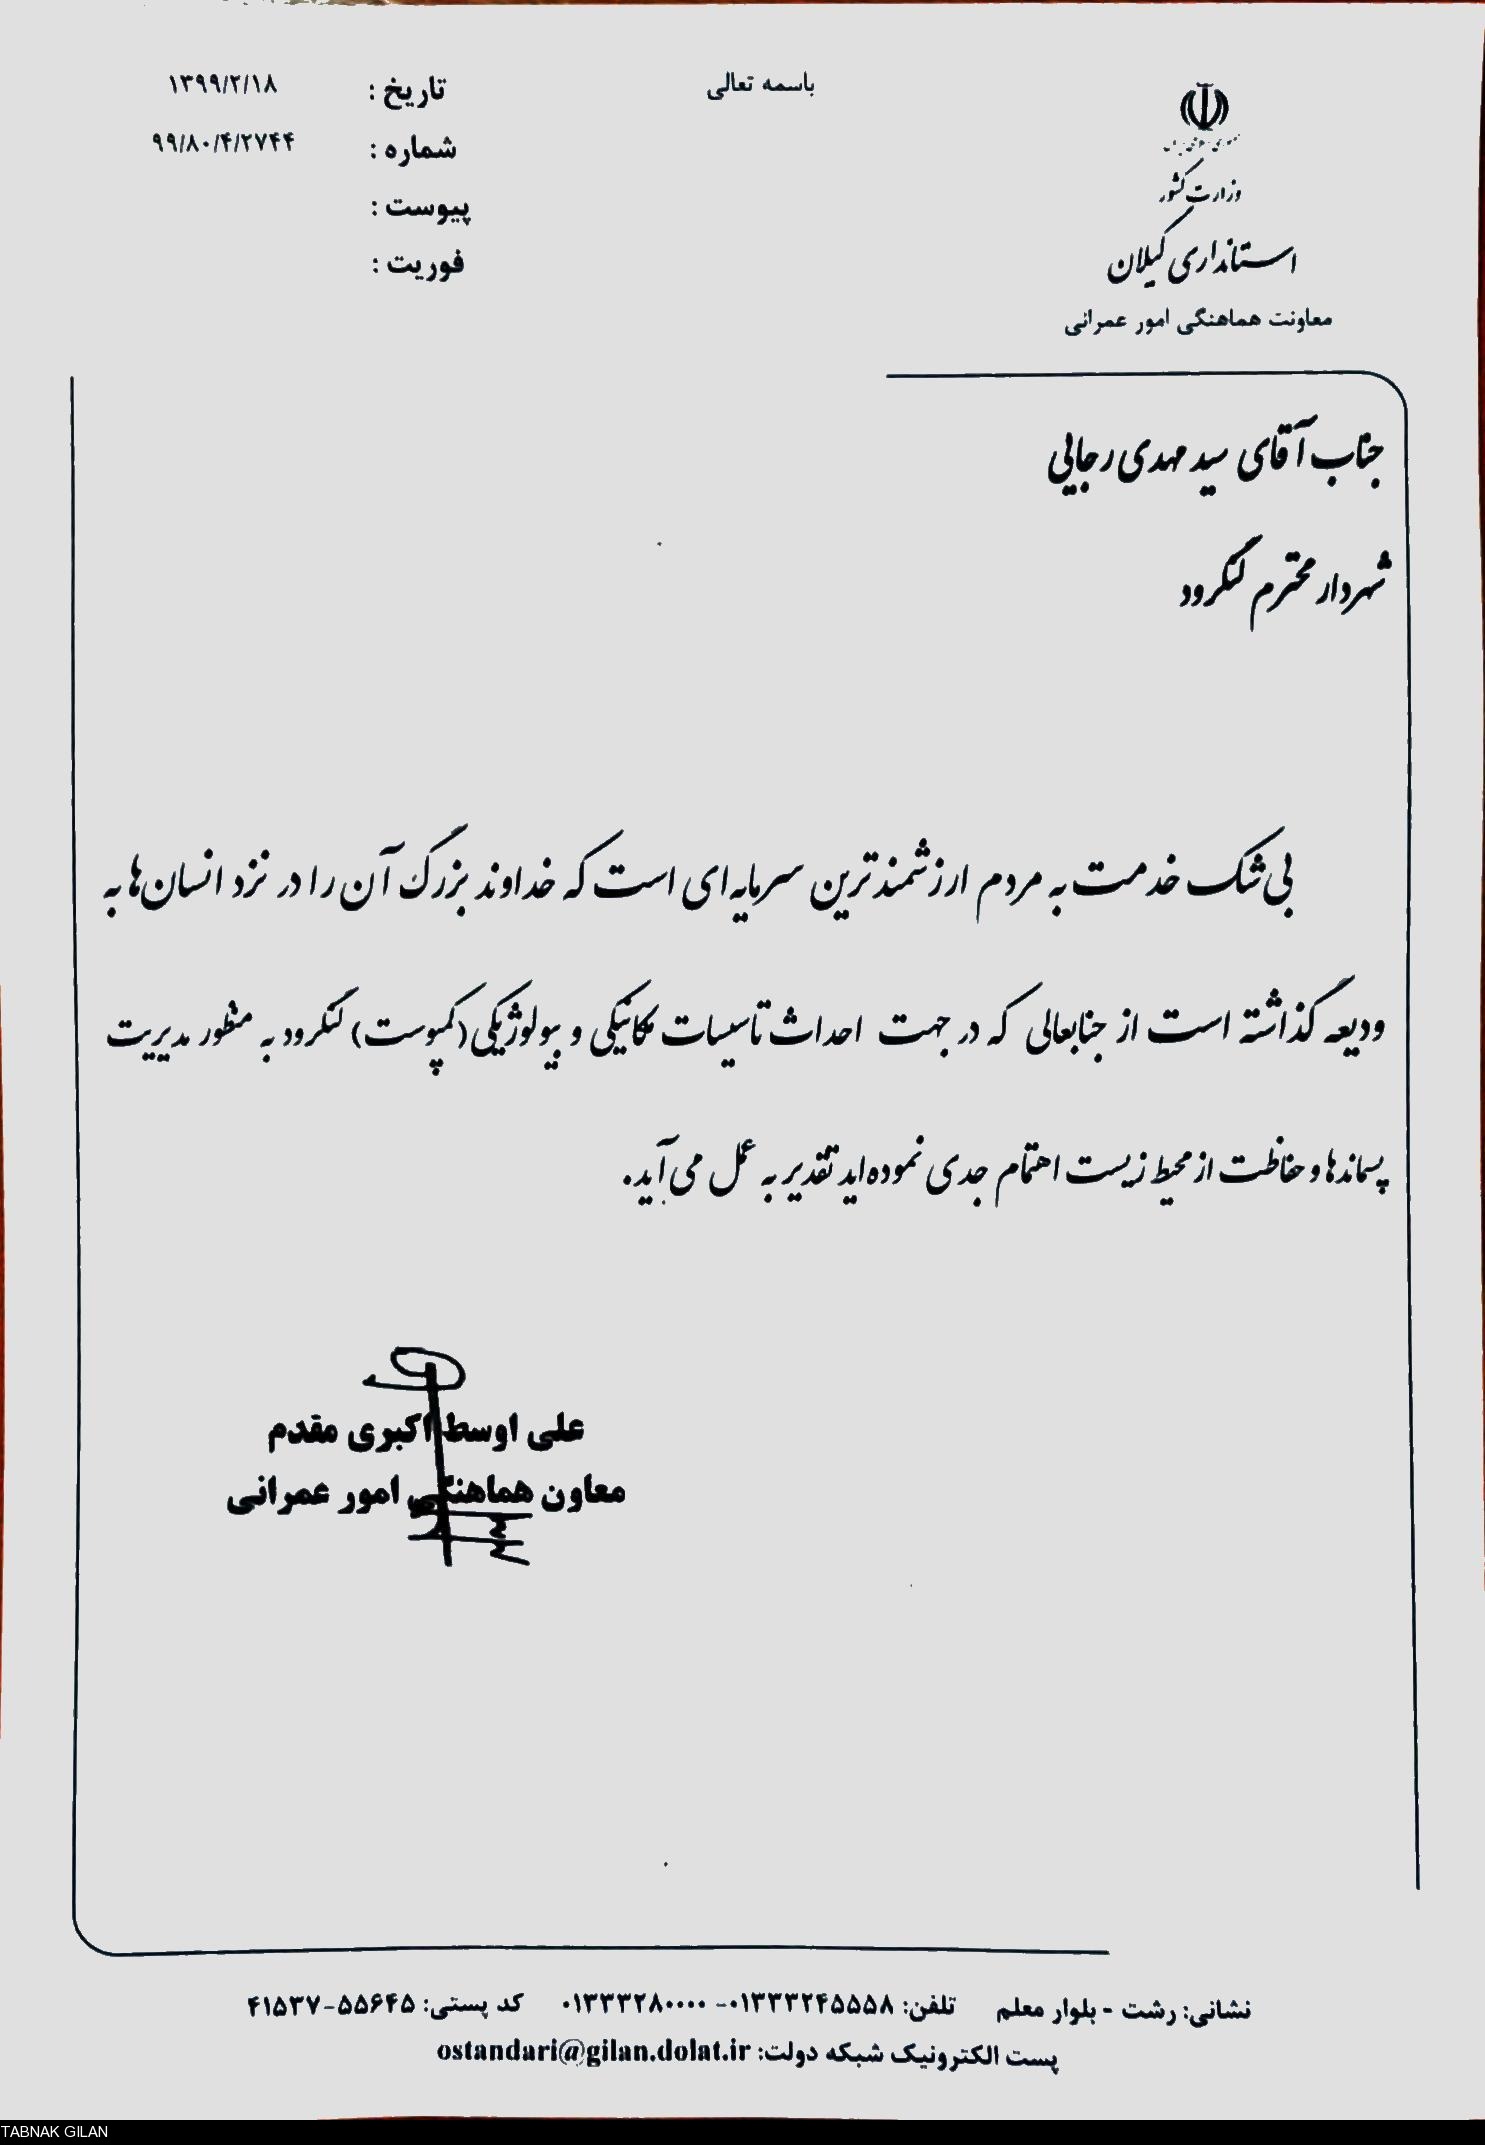 باسمه تعالی
جمهوری اسلامی ایران
وزارت کشور
استانداری گیلان
معاونت هماهنگی امور عمرانی
تاریخ : ۱۳۹۹/۲/۱۸
شماره : ۹۹/۸۰/۴/۲۷۴۴
پیوست :
فوریت :
جناب آقای سید مهدی رجایی
شهردار محترم لنگرود
بی شک خدمت به مردم ارزشمندترین سرمایه ای است که خداوند بزرگ آن را در نزد انسان ها به
ودیعه گذاشته است از جنابعالی که در جهت احداث تاسیسات مکانیکی و بیولوژیکی (کمپوست) لنگرود به منظور مدیریت
پسماندها و حفاظت از محیط زیست اهتمام جدی نموده اید تقدیر به عمل می آید.
علی اوسط اکبری مقدم
معاون هماهنگی امور عمرانی
نشانی: رشت - بلوار معلم تلفن: ۰۱۳۳۳۲۴۵۵۵۸- ۰۱۳۳۳۲۸۰۰۰۰ کد پستی: ۵۵۶۴۵-۴۱۵۳۷
پست الکترونیک شبکه دولت: ostandari@gilan.dolat.ir
TABNAK GILAN